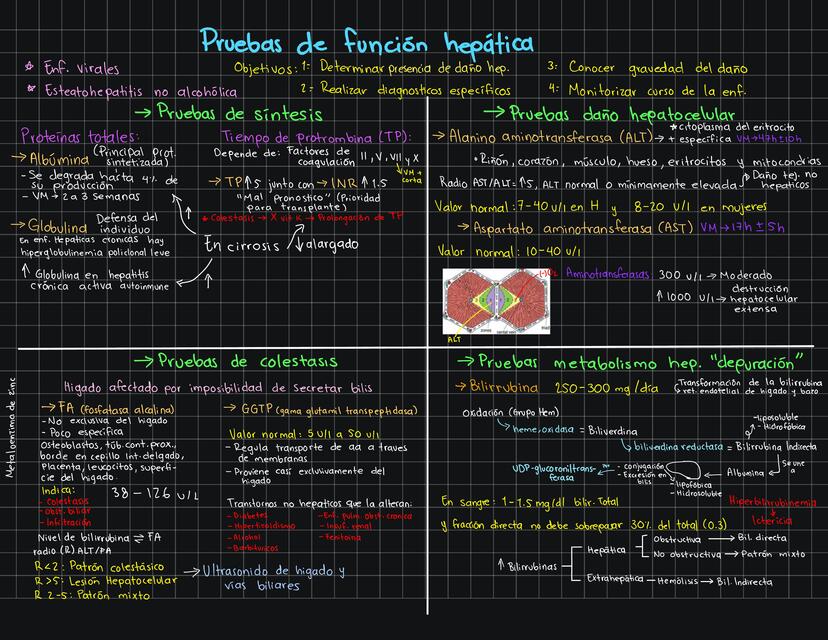 Pruebas de función hepática
* Enf. virales
* Esteatohepatitis no alcohólica
Objetivos: 1- Determinar presencia de daño hep.
2- Realizar diagnosticos específicos
3- Conocer gravedad del daño
4- Monitorizar curso de la enf.
→ Pruebas de síntesis
Proteínas totales:
→ Albúmina (Principal prot. sintetizada)
- Se degrada hasta 4% de
su producción
- VM → 2 a 3 semanas
→ Globulina Defensa del
individuo
En enf. Hepaticas cronicas hay
hiperglobulinemia policlonal leve
↑ Globulina en hepatitis
crónica activa autoinmune
Tiempo de Protrombina (TP):
Depende de: Factores de
coagulación II, V, VII y X
VM + corta
→ TP ↑5 junto con → INR ↑ 1.5
"Mal Pronostico" (Prioridad
para transplante)
* Colestasis → X vit K → Prolongación de TP
En cirrosis
↓ alargado
→ Pruebas daño hepatocelular
→ Alanino aminotransferasa (ALT) → * citoplasma del eritrocito
+ específica VM → 47h ± 10h
• Riñón, corazón, músculo, hueso, eritrocitos y mitocondrias
Radio AST/ALT = ↑5, ALT normal o mínimamente elevada
Daño tej. no
hepaticos
Valor normal: 7-40 u/l en H y 8-20 u/l en mujeres
→ Aspartato aminotransferasa (AST) VM → 17h ± 5h
Valor normal: 10-40 u/l
(-)O₂
ALT
zones
central vein
triad
Aminotransferasas: 300 u/l → Moderado
↑ 1000 u/l → destrucción
hepatocelular
extensa
→ Pruebas de colestasis
Higado afectado por imposibilidad de secretar bilis
Metaloenzima de zinc
→ FA (fosfatasa alcalina)
- No exclusiva del higado
- Poco especifica
Osteoblastos, túb. cont. prox.,
borde en cepillo int. delgado,
Placenta, leucocitos, superfi-
cie del higado.
Indica: 38 - 126 u/L
- Colestasis
- Obst. biliar
- Infiltración
Nivel de bilirrubina ⇌ FA
radio (R) ALT/FA
R<2: Patrón colestásico
R>5: Lesión Hepatocelular
R 2-5: Patrón mixto
→ GGTP (gama glutamil transpeptidasa)
Valor normal: 5 u/l a 50 u/l
- Regula transporte de aa a traves
de membranas
- Proviene casi exclusivamente del
higado
Transtornos no hepaticos que la alteran:
- Diabetes
- Hipertiroidismo
- Alcohol
- Barbituricos
- Enf. pulm. obst. cronica
- Insuf. renal
- Fenitoina
→ Ultrasonido de higado y
vias biliares
→ Pruebas metabolismo hep. "depuración"
→ Bilirrubina 250-300 mg/día
Transformación de la bilirrubina
ret. endotelial de higado y bazo
Oxidación (Grupo Hem)
heme, oxidasa = Biliverdina
biliverdina reductasa = Bilirrubina Indirecta
- liposoluble
- Hidrofóbica
Se une
a
Albumina
UDP-glucoroniltrans-
ferasa
- conjugación
- Excresión en
bilis
- lipofóbica
- Hidrosoluble
En sangre: 1-1.5 mg/dl bilir. Total
y fracción directa no debe sobrepasar 30% del total (0.3)
Hiperbilirrubinemia
Ictericia
↑ Bilirrubinas
Hepática
Obstructiva → Bil. directa
No obstructiva → Patrón mixto
Extrahepática — Hemólisis → Bil. Indirecta